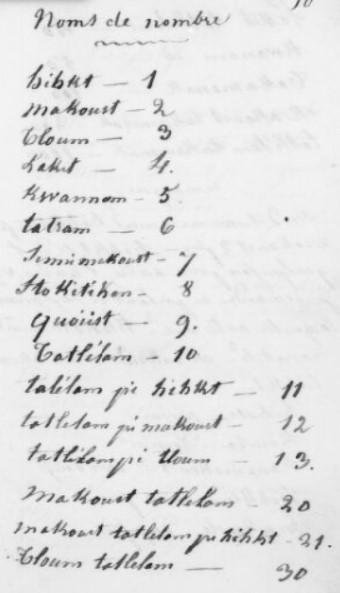 Noms de nombre
hihkt — 1
makoust — 2
tloum — 3
Laket — 4.
Kwannom — 5
tatram — 6
Semimakoust — 7
Stokitikan — 8
Quoiist — 9.
Tatlélam — 10
talélam pi hihkt — 11
tatlelam pi makoust — 12
tatlélam pi tloum — 13.
Makoust tatlelam 20
makoust tatlelam pi hihkt - 21.
Tloum tatlelam — 30